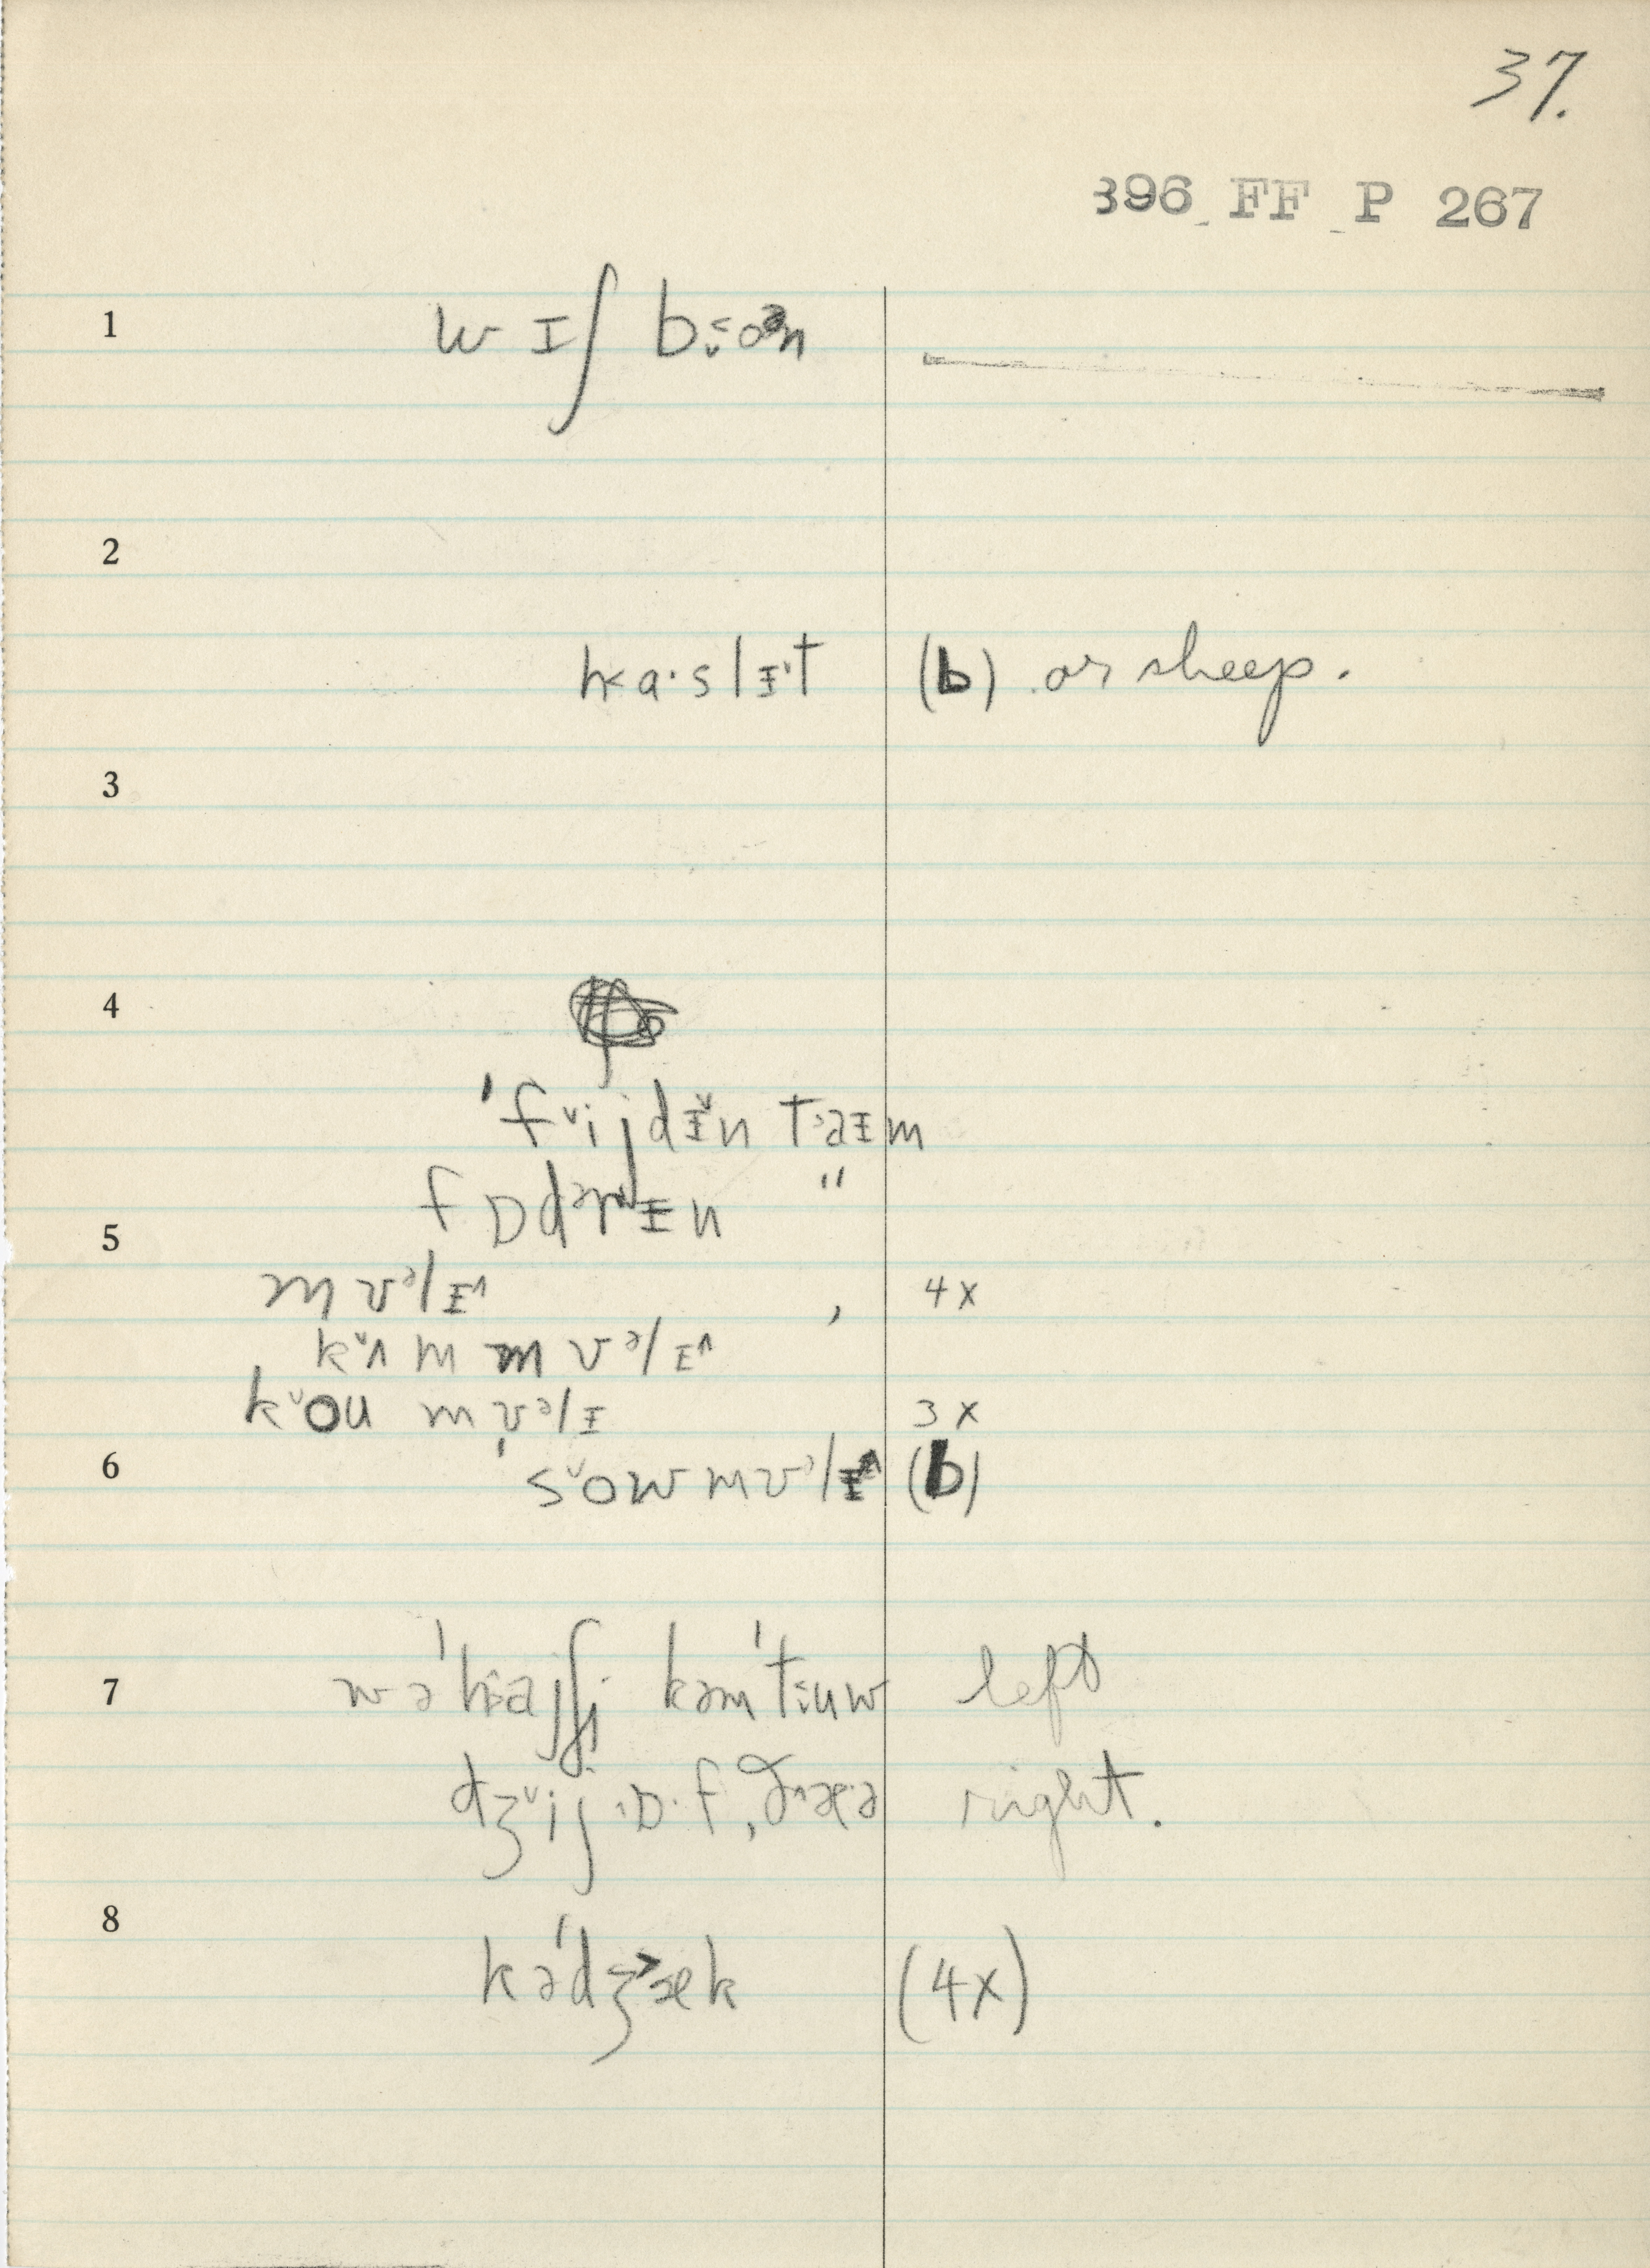 37.
396 FF P 267
1
wɪʃ bɔən
2
ha·slɪt (b) or sheep.
3
4
'fijdɪn taɪm
fɒdərɪn "
5
mʊəlɪ^ , 4x
kʌm mʊəlɪ^
kou mʊəlɪ 3x
6
sow mʊəlɪ^ (b)
7
wə'haʃ kəm'tuw left
dʒij·ɒ·f, left
right.
8
kə'dʒæk (4x)